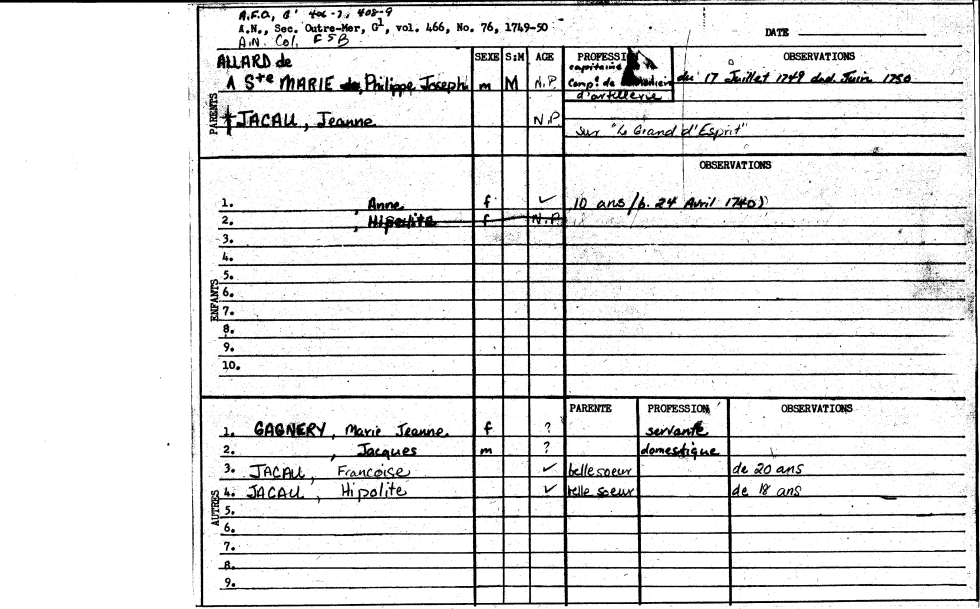 A.F.O, G' 406-7, 408-9
A.N., Sec. Outre-Mer, G1, vol. 466, No. 76, 1749-50
A.N. Col, F5B
DATE
ALLARD de SEXE S:M AGE PROFESSION OBSERVATIONS
A Ste MARIE Philippe Joseph m M N.P capitaine Comp. de d'artillerie du 17 Juillet 1749 Juin 1750
PARENTS
JACAU, Jeanne N.P sur "Le Grand d'Esprit"
OBSERVATIONS
ENFANTS
1. , Anne f ✓ 10 ans (b. 24 Avril 1740)
2. , Hipolite f N.P
3.
4.
5.
6.
7.
8.
9.
10.
PARENTE PROFESSION OBSERVATIONS
AUTRES
1. GAGNERY, Marie Jeanne f ? servante
2. , Jacques m ? domestique
3. JACAU, Francoise ✓ belle soeur de 20 ans
4. JACAU, Hipolite ✓ belle soeur de 18 ans
5.
6.
7.
8.
9.